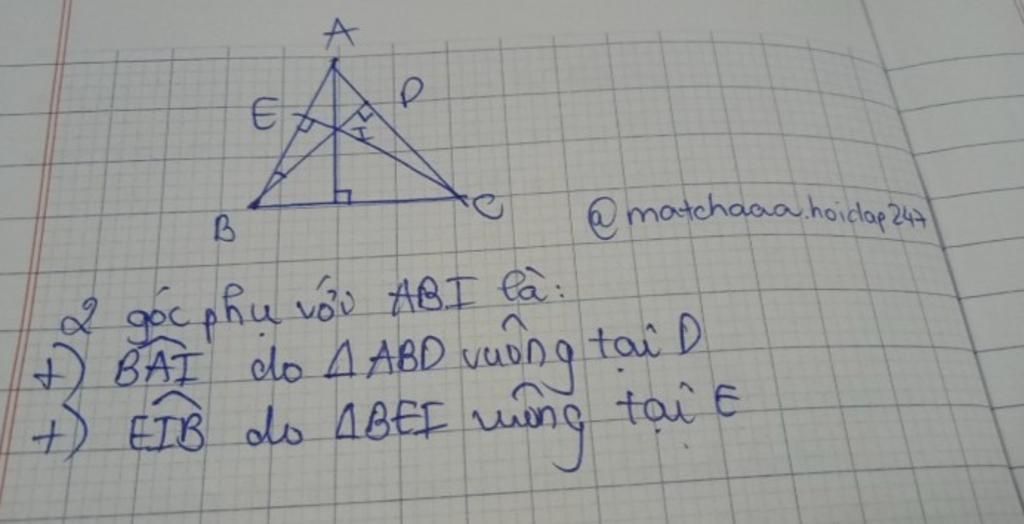 A
E D
I
B C
@matchaaa.hoidap247
2 góc phụ với ABI là:
+) BAI do ΔABD vuông tại D
+) EIB do ΔBEI vuông tại E